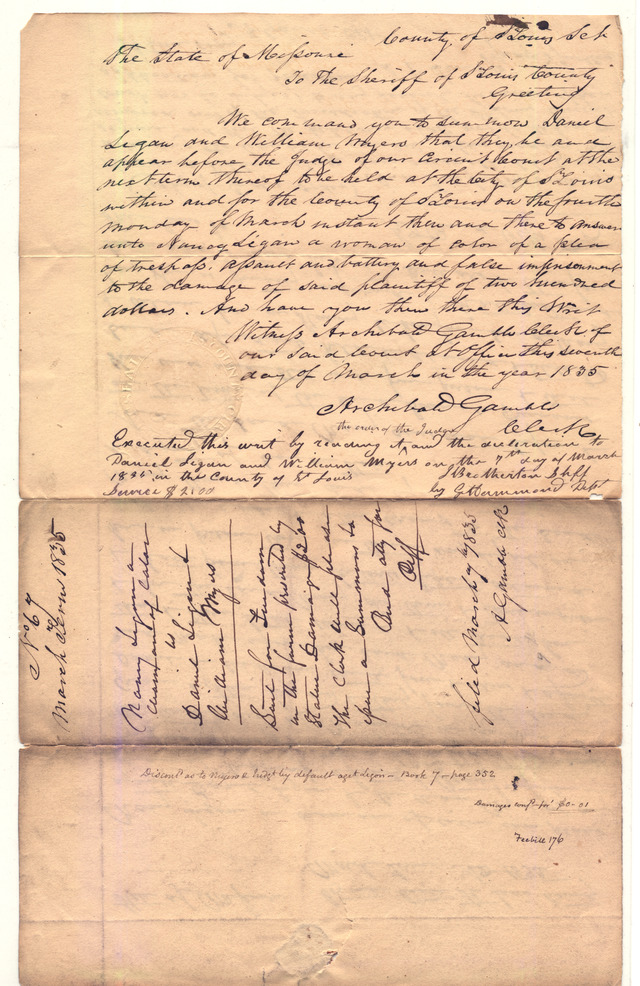 The State of Missouri County of St Louis Sct
To the Sheriff of St Louis County
Greeting
We command you to summon Daniel
Ligan and William Myers that they be and
appear before the Judge of our Circuit Court at the
next term thereof to be held at the City of St Louis
within and for the County of St Louis on the fourth
monday of March instant then and there to answer
unto Nancy Ligan a woman of color of a plea
of trespass. assault and battery and false imprisonment
to the damage of said plaintiff of two hundred
dollars. And have you then there this Writ
Witness Archibald Gamble Clerk of
our said Court at office this seventh
day of March in the year 1835
Archibald Gamble
Clerk
the order of the Judge
Executed this writ by reading it and the declaration to
Daniel Ligan and William Myers on the 7th day of March
1835 in the County of St Louis
Service $ 2.00
J Brotherton Shff
by Dept
No 67
March Term 1835
Nancy Ligon a
woman of Color
vs
Daniel Ligon &
William Myers
Suit for freedom
in the form prescribed by
Statute Damages $200
The Clerk will please
issue a Summons &c
atty for
Plff
filed March 7th 1835
A Gamble clk
Discont as to Myers & Judgt by default agst Ligon - Book 7 - page 352
Damages for $0-01
Feebill 176